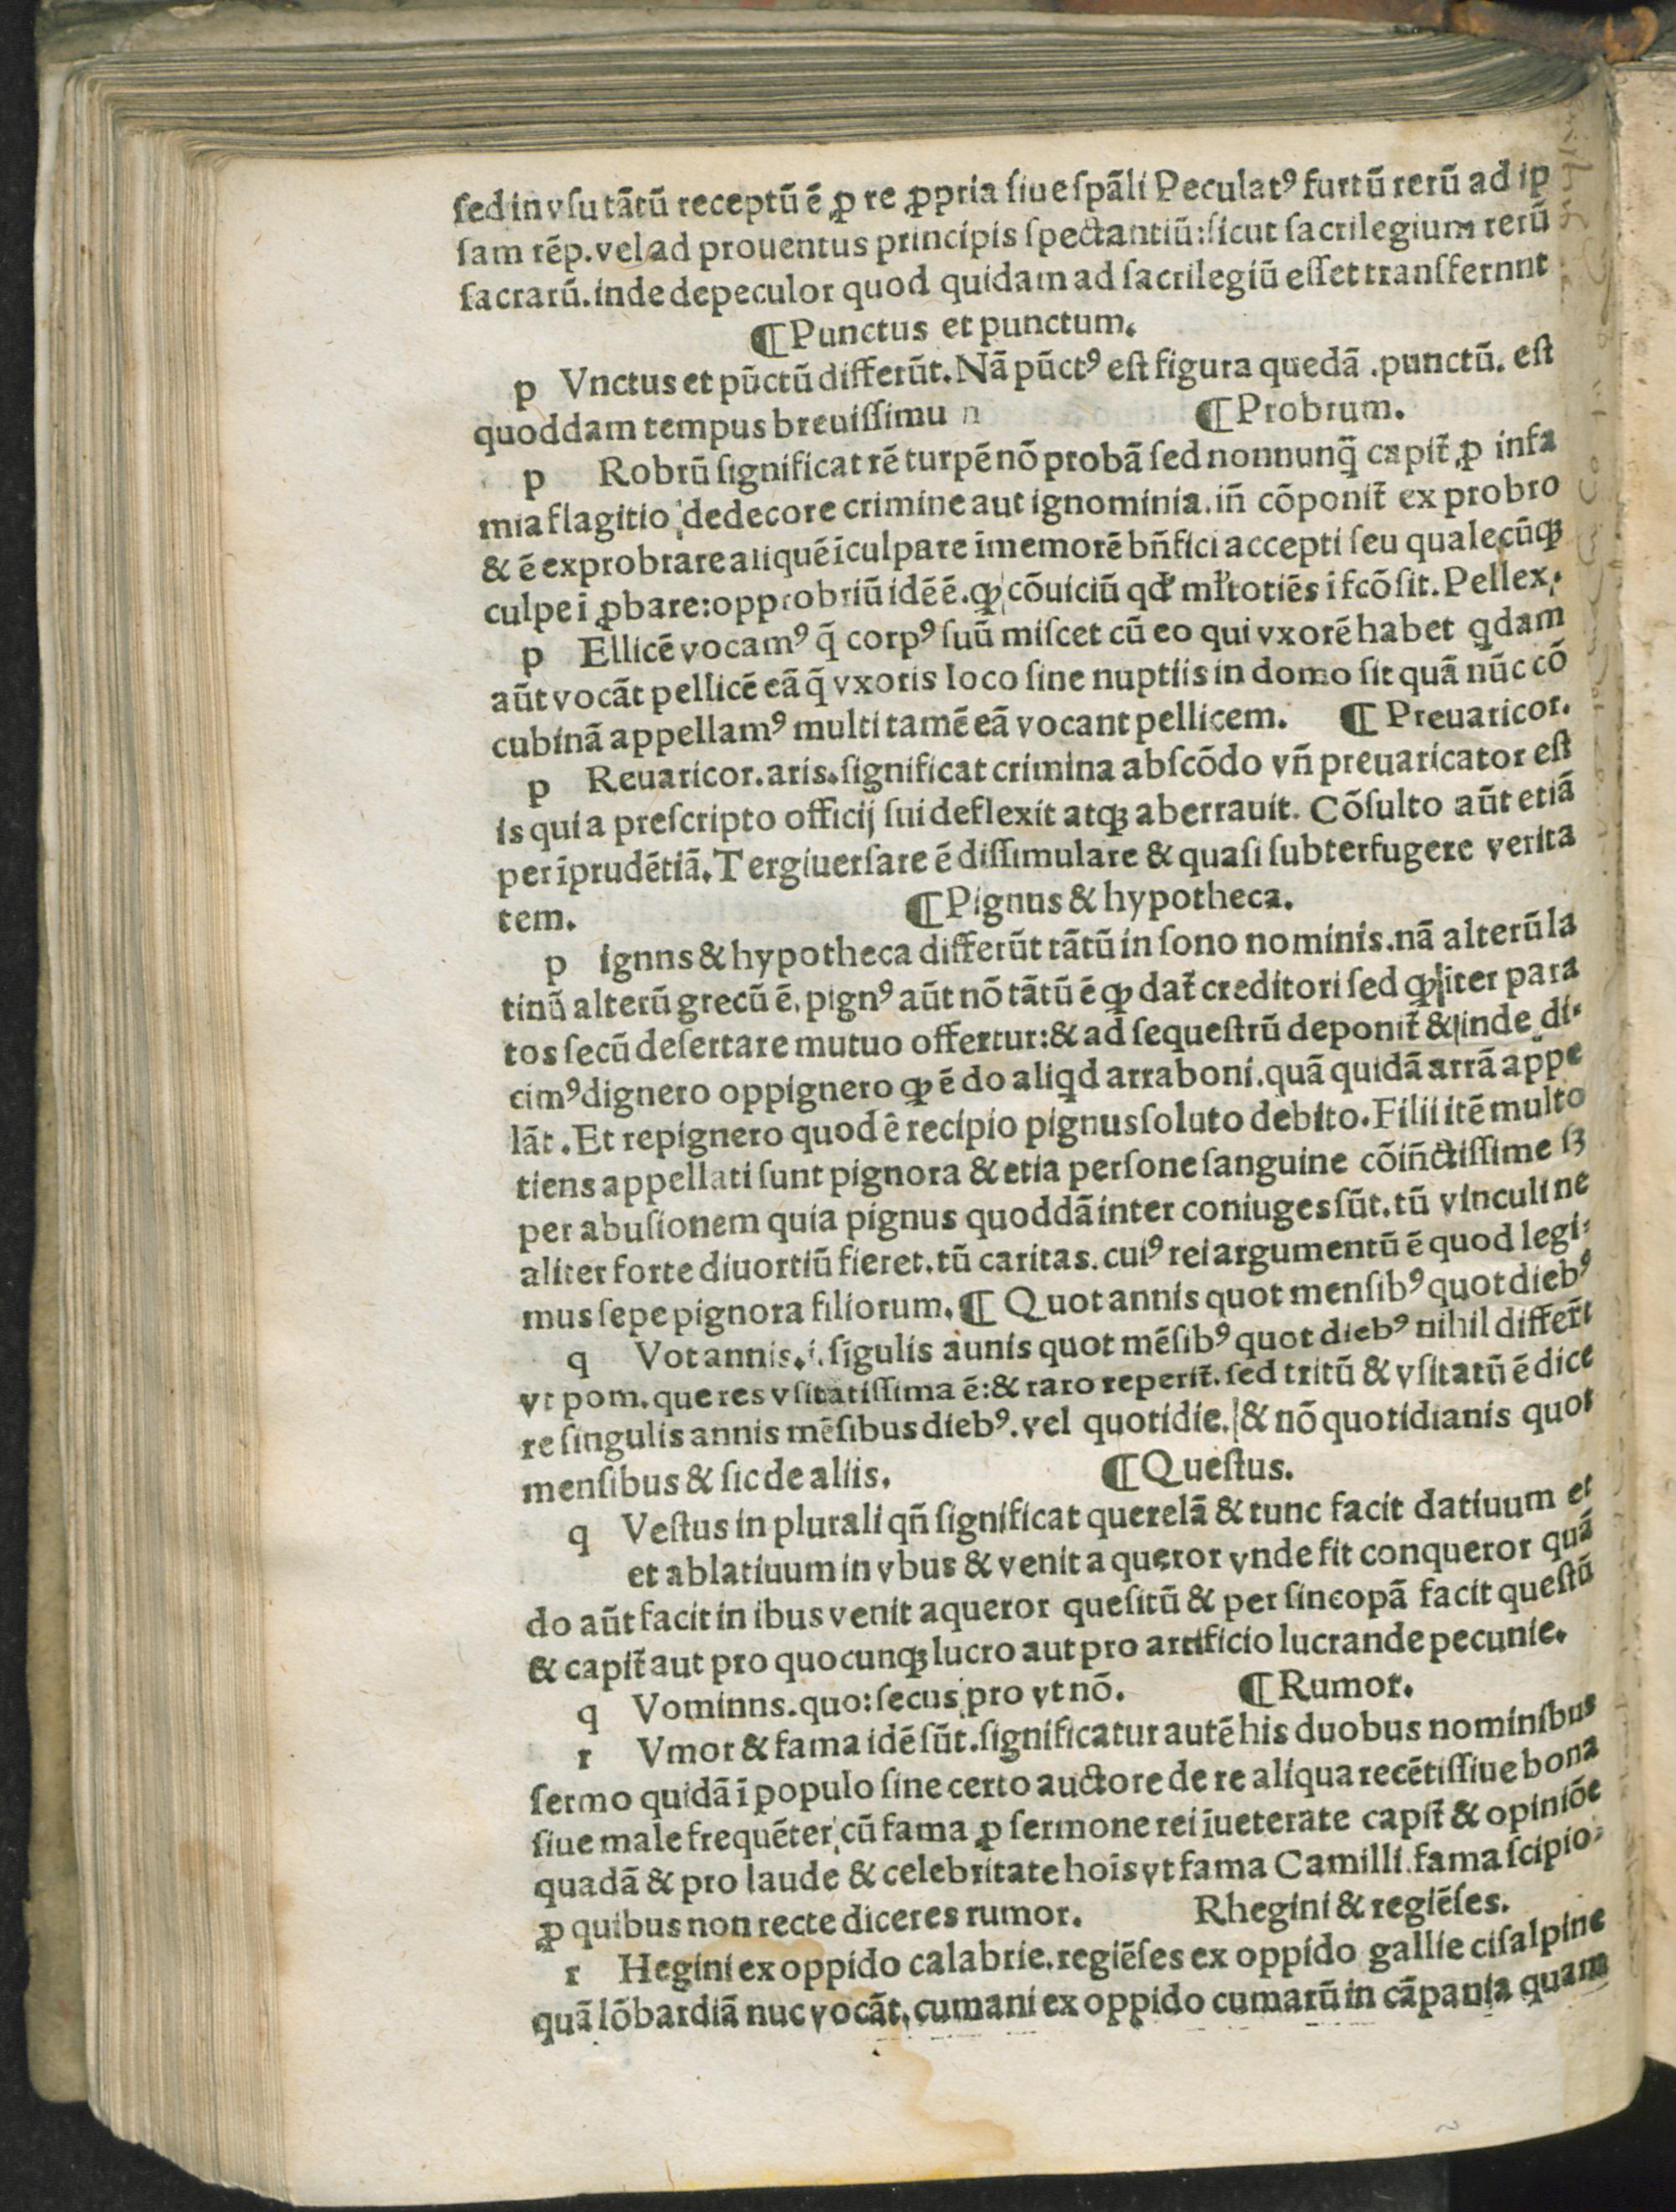 ſed in vſu tãtũ receptũ ẽ ꝓ re ꝓpria ſiue ſpãli Peculatꝰ furtũ rerũ ad ip
ſam rẽp. vel ad prouentus principis ſpectantiũ: ſicut ſacrilegium rerũ
ſacrarũ. inde depeculor quod quidam ad ſacrilegiũ eſſet tranſfernnt
¶ Punctus et punctum.
p Vnctus et pũctũ differũt. Nã pũctꝰ eſt figura quedã . punctũ. eſt
quoddam tempus breuiſſimu n ¶ Probrum.
p Robrũ ſignificat rẽ turpẽ nõ probã ſed nonnunq̃ capit̃ ꝓ infa
mia flagitio dedecore crimine aut ignominia. iñ cõponit̃ ex probro
& ẽ exprobrare aliquẽ ĩculpare ĩmemorẽ bñfici accepti ſeu qualecũqꝫ
culpe i ꝓbare: opprobriũ idẽ ẽ. ꝙ cõuiciũ qđ ml̃totiẽs i fcõ ſit. Pellex.
p Ellicẽ vocamꝰ q̃ corpꝰ ſuũ miſcet cũ eo qui vxorẽ habet q̇dam
aũt vocãt pellicẽ eã q̃ vxoris loco ſine nuptiis in domo ſit quã nũc cõ
cubinã appellamꝰ multi tamẽ eã vocant pellicem. ¶ Preuaricor.
p Reuaricor. aris. ſignificat crimina abſcõdo vñ preuaricator eſt
is qui a preſcripto officij ſui deflexit atqꝫ aberrauit. Cõſulto aũt etiã
per ĩprudẽtiã. Tergiuerſare ẽ diſſimulare & quaſi ſubterfugere verita
tem. ¶ Pignus & hypotheca.
p ignns & hypotheca differũt tãtũ in ſono nominis. nã alterũ la
tinũ alterũ grecũ ẽ. pignꝰ aũt nõ tãtũ ẽ ꝙ dat̃ creditori ſed ꝙ iter para
tos ſecũ deſertare mutuo offertur: & ad ſequeſtrũ deponit̃ & inde di⸗
cimꝰ dignero oppignero ꝙ ẽ do aliq̇d arraboni. quã quidã arrã appe
lãt. Et repignero quod ẽ recipio pignus ſoluto debito. Filii itẽ multo
tiens appellati ſunt pignora & etia perſone ſanguine cõiñctiſſime ſꝫ
per abuſionem quia pignus quoddã inter coniuges ſũt. tũ vinculi ne
aliter forte diuortiũ fieret. tũ caritas. cuiꝰ rei argumentũ ẽ quod legi⸗
mus ſepe pignora filiorum. ¶ Quot annis quot menſibꝰ quot diebꝰ
q Vot annis. i. ſĩgulis aunis quot mẽſibꝰ quot diebꝰ nihil differt̃
vt pom. que res vſitatiſſima ẽ: & raro reperit̃. ſed tritũ & vſitatũ ẽ dice
re ſingulis annis mẽſibus diebꝰ. vel quotidie. & nõ quotidianis quot
menſibus & ſic de aliis. ¶ Queſtus.
q Veſtus in plurali qñ ſignificat querelã & tunc facit datiuum et
et ablatiuum in vbus & venit a queror vnde fit conqueror quã
do aũt facit in ibus venit a queror queſitũ & per ſincopã facit queſtũ
& capit̃ aut pro quocunqꝫ lucro aut pro artificio lucrande pecunie.
q Vominns. quo: ſecus pro vt nõ. ¶ Rumor.
r Vmor & fama idẽ ſũt. ſignificatur autẽ his duobus nominibus
ſermo quidã ĩ populo ſine certo auctore de re aliqua recẽti ſſiue bona
ſiue male frequẽter cũ fama ꝓ ſermone rei ĩueterate capit̃ & opiniõe
quadã & pro laude & celebritate hoĩs vt fama Camilli. fama ſcipio⸗
ꝓ quibus non recte diceres rumor. Rhegini & regiẽſes.
r Hegini ex oppido calabrie. regiẽſes ex oppido gallie ciſalpine
quã lõbardiã nuc vocãt, cumani ex oppido cumarũ in cãpania quam